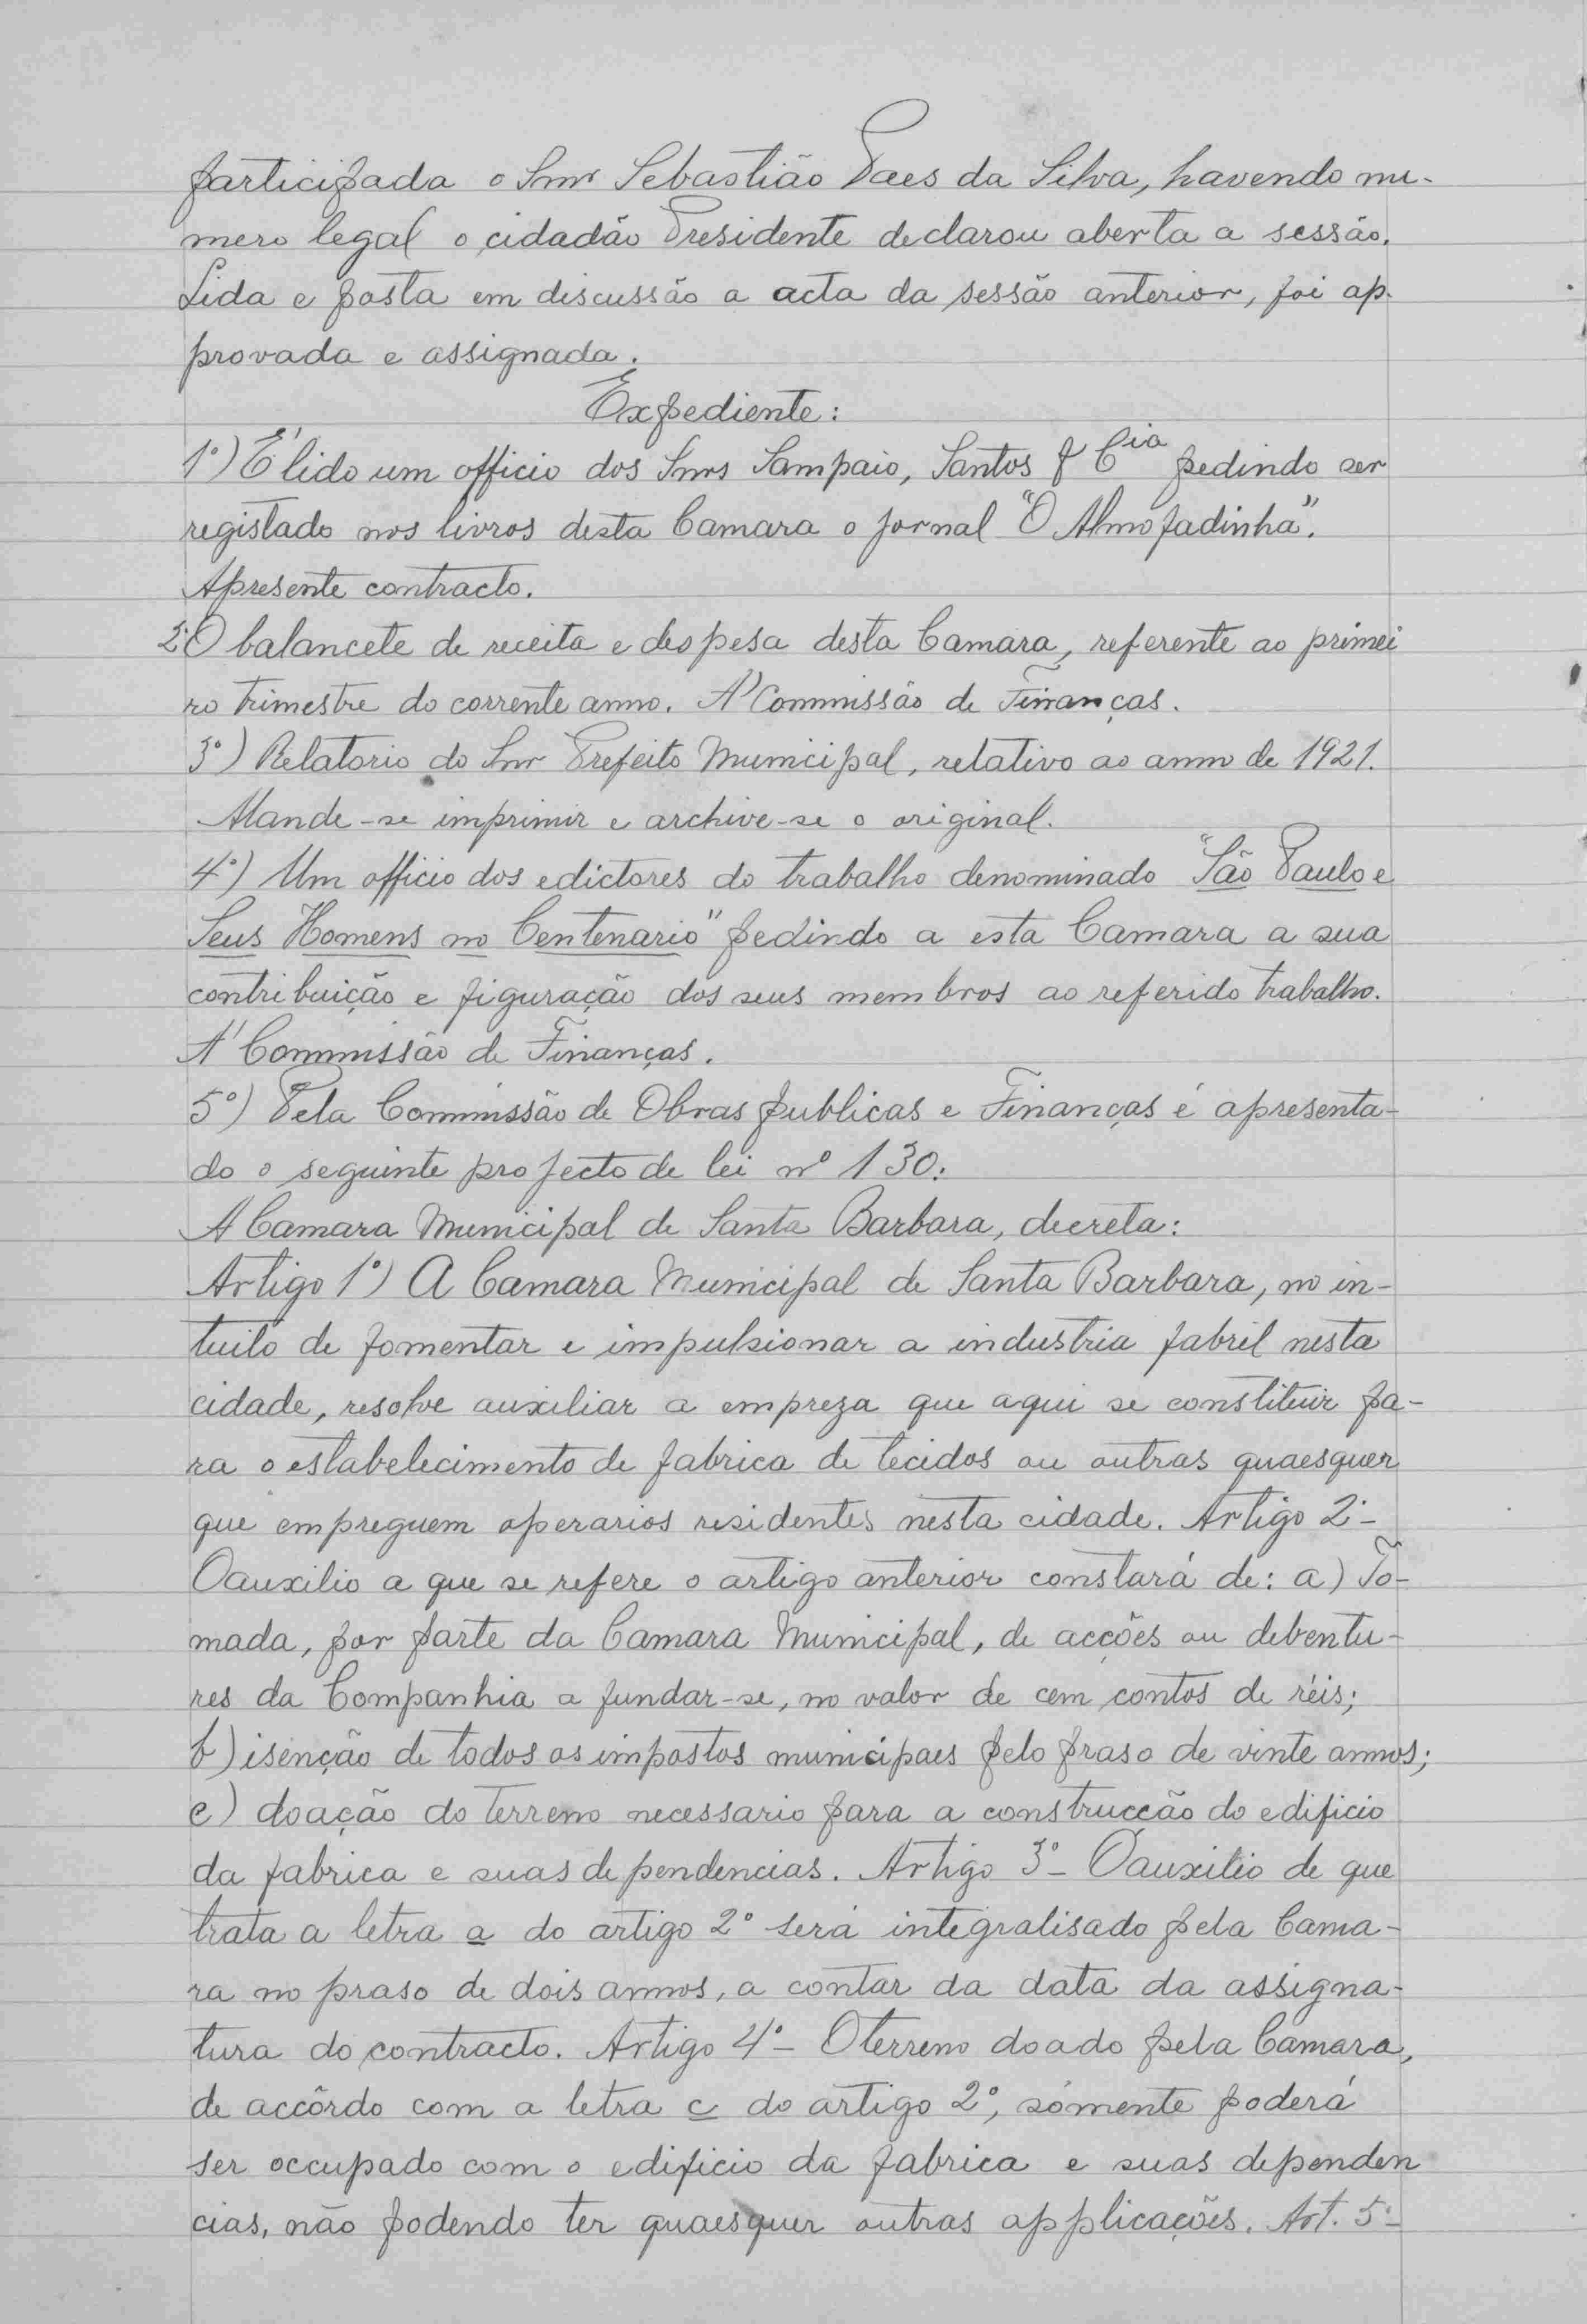 participada o Snr Sebastião Paes da Silva, havendo nu-
mero legal o cidadão Presidente declarou aberta a sessão.
Lida e posta em discussão a acta da sessão anterior, foi ap-
provada e assignada.
Expediente:
1º) É lido um officio dos Snrs Sampaio, Santos & Cia pedindo ser
registado nos livros desta Camara o jornal "O Almofadinha".
Apresente contracto.
2º O balancete de receita e despesa desta Camara, referente ao primei
ro trimestre do corrente anno. A' Commissão de Finanças.
3º) Relatorio do Snr Prefeito Municipal, relativo ao anno de 1921.
Mande-se imprimir e archive-se o original.
4º) Um officio dos edictores do trabalho denominado "São Paulo e
Seus Homens no Centenario" pedindo a esta Camara a sua
contribuição e figuração dos seus membros ao referido trabalho.
A' Commissão de Finanças.
5º) Pela Commissão de Obras publicas e Finanças é apresenta-
do o seguinte projecto de lei nº 130:
A Camara Municipal de Santa Barbara, decreta:
Artigo 1º) A Camara Municipal de Santa Barbara, no in-
tuito de fomentar e impulsionar a industria fabril nesta
cidade, resolve auxiliar a empreza que aqui se constituir pa-
ra o estabelecimento de fabrica de tecidos ou outras quaesquer
que empreguem operarios residentes nesta cidade. Artigo 2º-
O auxilio a que se refere o artigo anterior constará de: a) To-
mada, por parte da Camara Municipal, de acções ou debentu-
res da Companhia a fundar-se, no valor de cem contos de réis;
b) isenção de todos os impostos municipaes pelo praso de vinte annos;
c) doação do terreno necessario para a construcção do edificio
da fabrica e suas dependencias. Artigo 3º- O auxilio de que
trata a letra a do artigo 2º será integralisado pela Cama-
ra no praso de dois annos, a contar da data da assigna-
tura do contracto. Artigo 4º- O terreno doado pela Camara,
de accôrdo com a letra c do artigo 2º, sómente poderá
ser occupado com o edificio da fabrica e suas dependen
cias, não podendo ter quaesquer outras applicações. Art. 5º-